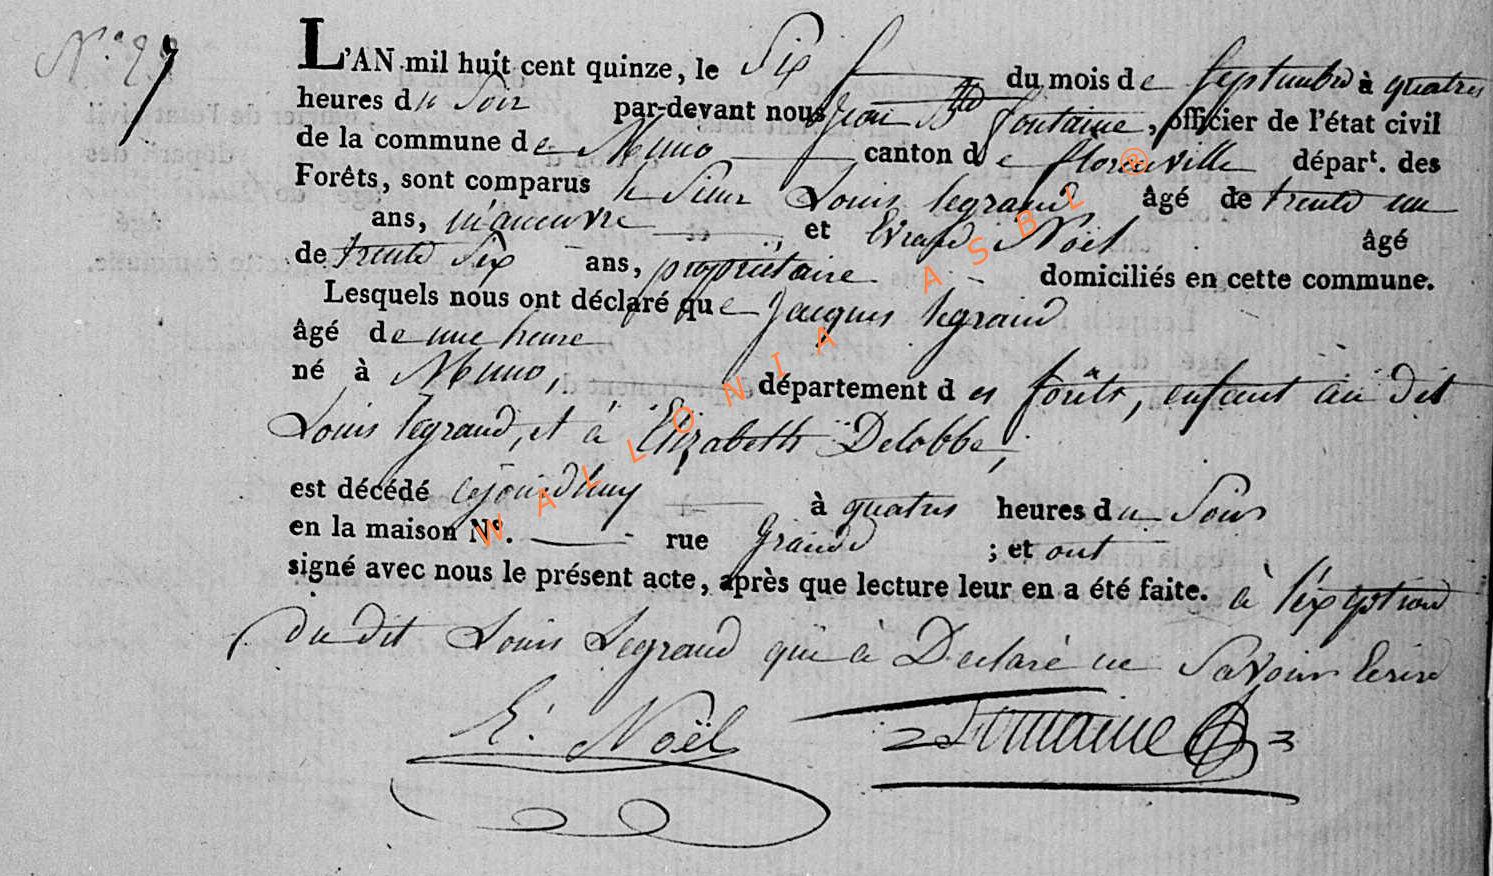 N.º
L'AN mil huit cent quinze, le Six du mois de Septembre à quatres
heures du Soir par-devant nous Jean Bte fontaine, officier de l'état civil
de la commune de Muno canton de florenville départ. des
Forêts, sont comparus le Sieur Louis legrand âgé de trente un
ans, maneuvre, et Evrard Noël âgé
de trente Six ans, propriétaire domiciliés en cette commune.
Lesquels nous ont déclaré que Jacques legrand
âgé de une heure
né à Muno, département des forêts, enfant au dit
Louis legrand, et à Elizabeth Delobbe,
est décédé cejourdhuy à quatres heures du Soir
en la maison Nº. rue Grande ; et ont
signé avec nous le présent acte, après que lecture leur en a été faite. à l'éxeption
du dit Louis Legrand qui à Declaré ne Savoir Ecrire
E. Noël fontaine
WALLONIA ASBL ®